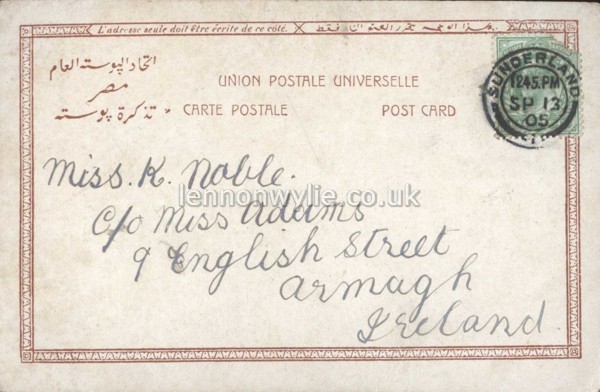 L'adresse seule doit être écrite de ce côté.
اتحاد البوسته العام
مصر
تذكرة بوسته
UNION POSTALE UNIVERSELLE
CARTE POSTALE POST CARD
SUNDERLAND
12.45.PM
SP 13
05
Miss. K. Noble.
lennonwylie.co.uk
C/o Miss Adams
9 English Street
Armagh
Ireland.